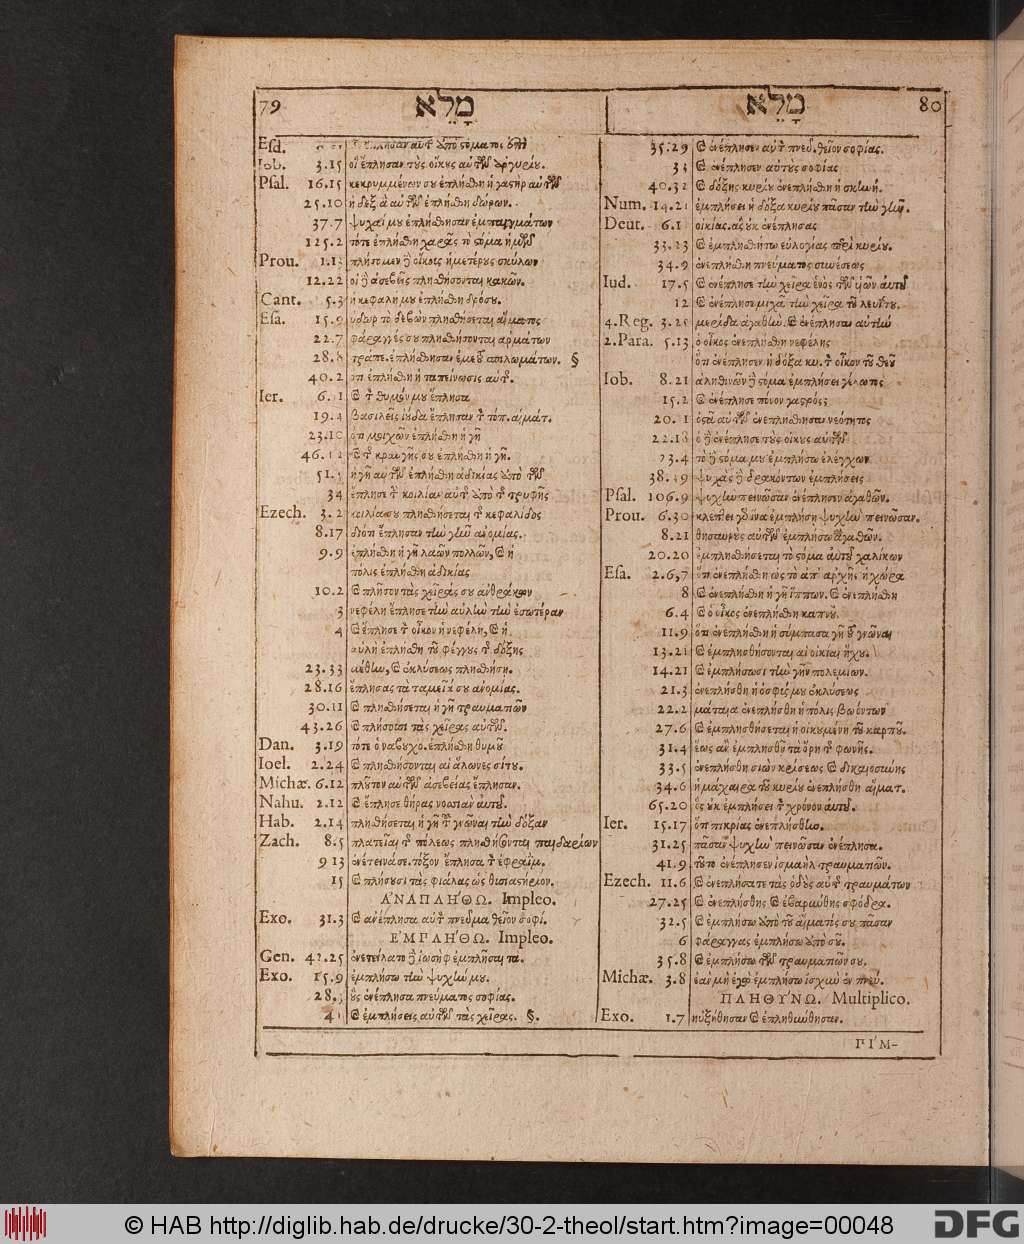 79 מָלֵא
Esd.
Iob. 3.15 οἳ ἔπλησαν τοὺς οἴκους αὐτῶν ἀργυρίου.
Psal. 16.15 κεκρυμμένων σου ἐπλήσθη ἡ γαστὴρ αὐτῶν
25.10 ἡ δεξιὰ αὐτῶν ἐπλήσθη δώρων.
37.7 ψυχαί μου ἐπλήσθησαν ἐμπαιγμάτων
125.2 τότε ἐπλήσθη χαρᾶς τὸ στόμα ἡμῶν
Prou. 1.13 πλήσωμεν δὲ οἴκους ἡμετέρους σκύλων
12.22 οἱ δὲ ἀσεβεῖς πλησθήσονται κακῶν.
Cant. 5.3 ἡ κεφαλή μου ἐπλήσθη δρόσου.
Esa. 15.9 ὕδωρ τὸ δεβὼν πλησθήσεται αἵματος
22.7 φάραγγές σου πλησθήσονται ἁρμάτων
28.8
40.2 ὅτι ἐπλήσθη ἡ ταπείνωσις αὐτῆς.
Ier. 6.11 καὶ τὸν θυμόν μου ἔπλησα
19.4 βασιλεῖς ἰούδα ἔπλησαν τὸν τόπ. αἱμάτ.
23.10 ὅτι μοιχῶν ἐπλήσθη ἡ γῆ
46.12 καὶ τῆς κραυγῆς σου ἐπλήσθη ἡ γῆ.
51.5 ἡ γῆ αὐτῶν ἐπλήσθη ἀδικίας ἀπὸ τῶν
34 ἔπλησε τὴν κοιλίαν αὐτοῦ ἀπὸ τῆς τρυφῆς
Ezech. 3.2 κοιλία σου πλησθήσεται τῆς κεφαλίδος
8.17 διότι ἔπλησαν τὴν γῆν ἀνομίας.
9.9 ἐπλήσθη ἡ γῆ λαῶν πολλῶν, καὶ ἡ
πόλις ἐπλήσθη ἀδικίας
10.2 καὶ πλῆσον τὰς χεῖράς σου ἀνθράκων
3 νεφέλη ἔπλησε τὴν αὐλὴν τὴν ἐσωτέραν
4 καὶ ἔπλησε τὸν οἶκον ἡ νεφέλη, καὶ ἡ
αὐλὴ ἐπλήσθη τοῦ φέγγους τῆς δόξης
23.33 μέθην, καὶ ἐκλύσεως πλησθήσῃ.
28.16 ἔπλησας τὰ ταμεῖά σου ἀνομίας.
30.11 καὶ πλησθήσεται ἡ γῆ τραυματιῶν
43.26 καὶ πλήσουσι τὰς χεῖρας αὐτῶν.
Dan. 3.19 τότε ὁ ναβουχο. ἐπλήσθη θυμοῦ
Ioel. 2.24 καὶ πλησθήσονται αἱ ἅλωνες σίτου.
Michæ. 6.12 πλοῦτον αὐτῶν ἀσεβείας ἔπλησαν.
Nahu. 2.12 καὶ ἔπλησε θήρας νοσσιὰν αὐτοῦ.
Hab. 2.14 πλησθήσεται ἡ γῆ τοῦ γνῶναι τὴν δόξαν
Zach. 8.5 πλατεῖαι τῆς πόλεως πλησθήσονται παιδαρίων
9 13 ἐνέτεινά σε. τόξον ἔπλησα τὸν ἐφραΐμ.
15 καὶ πλήσουσι τὰς φιάλας ὡς θυσιαστήριον.
ἈΝΑΠΛΉΘΩ. Impleo.
Exo. 31.3 καὶ ἀνέπλησα αὐτὸν πνεῦμα θεῖον σοφί.
ἘΜΠΛΉΘΩ. Impleo.
Gen. 42.25 ἐνετείλατο δὲ ἰωσὴφ ἐμπλῆσαι τα.
Exo. 15.9 ἐμπλήσω τὴν ψυχήν μου.
28.3 οὓς ἐνέπλησα πνεύματος σοφίας.
41 καὶ ἐμπλήσεις αὐτῶν τὰς χεῖρας. §.
מָלֵא 80
35.29 καὶ ἐνέπλησεν αὐτὸν πνεῦ. θεῖον σοφίας.
33 καὶ ἐνέπλησεν αὐτοὺς σοφίας
40.32 καὶ δόξης κυρίου ἐνεπλήσθη ἡ σκηνή.
Num. 14.21 ἐμπλήσει ἡ δόξα κυρίου πᾶσαν τὴν γῆν.
Deut. 6.11 οἰκίας. ἃς οὐκ ἐνέπλησας
33.23 καὶ ἐμπλησθήτω εὐλογίας παρὰ κυρίου.
34.9 ἐνεπλήσθη πνεύματος συνέσεως
Iud. 17.5 καὶ ἐνέπλησε τὴν χεῖρα ἑνὸς τῶν υἱῶν αὐτοῦ
12 καὶ ἐνέπλησε μιχὰ τὴν χεῖρα τοῦ λευΐτου.
4.Reg. 3.25 μερίδα ἀγαθὴν. καὶ ἐνέπλησαν αὐτὴν
2.Para. 5.13 ὁ οἶκος ἐνεπλήσθη νεφέλης
ὅτι ἐνέπλησεν ἡ δόξα κυ. τὸν οἶκον τοῦ θεοῦ
Iob. 8.21 ἀληθινῶν δὲ στόμα ἐμπλήσει γέλωτος
15.2 καὶ ἐνέπλησε πόνον γαστρός;
20.11 ὀστᾶ αὐτῶν ἐνεπλήσθησαν νεότητος
22.18 ὁ δὲ ἐνέπλησε τοὺς οἴκους αὐτῶν
23.4 τὸ δὲ στόμα μου ἐμπλήσω ἐλέγχων
38.39 ψυχὰς δὲ δρακόντων ἐμπλήσεις
Psal. 106.9 ψυχὴν πεινῶσαν ἐνέπλησεν ἀγαθῶν.
Prou. 6.30 κλέπτει γὰρ ἵνα ἐμπλήσῃ ψυχὴν πεινῶσαν.
8.21 θησαυροὺς αὐτῶν ἐμπλήσω ἀγαθῶν.
20.20 ἐμπλησθήσεται τὸ στόμα αὐτοῦ χαλίκων
Esa. 2.6,7 ὅτι ἐνεπλήσθη ὡς τὸ ἀπ' ἀρχῆς ἡ χώρα
8 καὶ ἐνεπλήσθη ἡ γῆ ἵππων. καὶ ἐνεπλήσθη
6.4 καὶ ὁ οἶκος ἐνεπλήσθη καπνοῦ.
11.9 ὅτι ἐνεπλήσθη ἡ σύμπασα γῆ τοῦ γνῶναι
13.21 καὶ ἐμπλησθήσονται αἱ οἰκίαι ἤχου.
14.21 καὶ ἐμπλήσωσι τὴν γῆν πολεμίων.
21.3 ἐνεπλήσθη ἡ ὀσφύς μου ἐκλύσεως
22.2 μάταια ἐνεπλήσθη ἡ πόλις βοώντων
27.6 καὶ ἐμπλησθήσεται ἡ οἰκουμένη τοῦ καρποῦ.
31.4 ἕως ἂν ἐμπλησθῇ τὰ ὄρη τῆς φωνῆς.
33.5 ἐνεπλήσθη σιὼν κρίσεως καὶ δικαιοσύνης
34.6 ἡ μάχαιρα τοῦ κυρίου ἐνεπλήσθη αἵματ.
65.20 ὃς οὐκ ἐμπλήσει τὸν χρόνον αὐτοῦ.
Ier. 15.17 ὅτι πικρίας ἐνεπλήσθην.
31.25 πᾶσαν ψυχὴν πεινῶσαν ἐνέπλησα.
41.9 τοῦτο ἐνέπλησεν ἰσμαὴλ τραυματιῶν.
Ezech. 11.6 καὶ ἐνεπλήσατε τὰς ὁδοὺς αὐτῆς τραυμάτων
27.25 καὶ ἐνεπλήσθης καὶ ἐβαρύνθης σφόδρα.
32.5 καὶ ἐμπλήσω ἀπὸ τοῦ αἵματός σου πᾶσαν
6 φάραγγας ἐμπλήσω ἀπὸ σοῦ.
35.8 καὶ ἐμπλήσω τῶν τραυματιῶν σου.
Michæ. 3.8 ἐὰν μὴ ἐγὼ ἐμπλήσω ἰσχὺν ἐν πνεύ.
ΠΛΗΘΎΝΩ. Multiplico.
Exo. 1.7 ηὐξήθησαν καὶ ἐπληθύνθησαν.
ΠΊΜ-
© HAB http://diglib.hab.de/drucke/30-2-theol/start.htm?image=00048
DFG